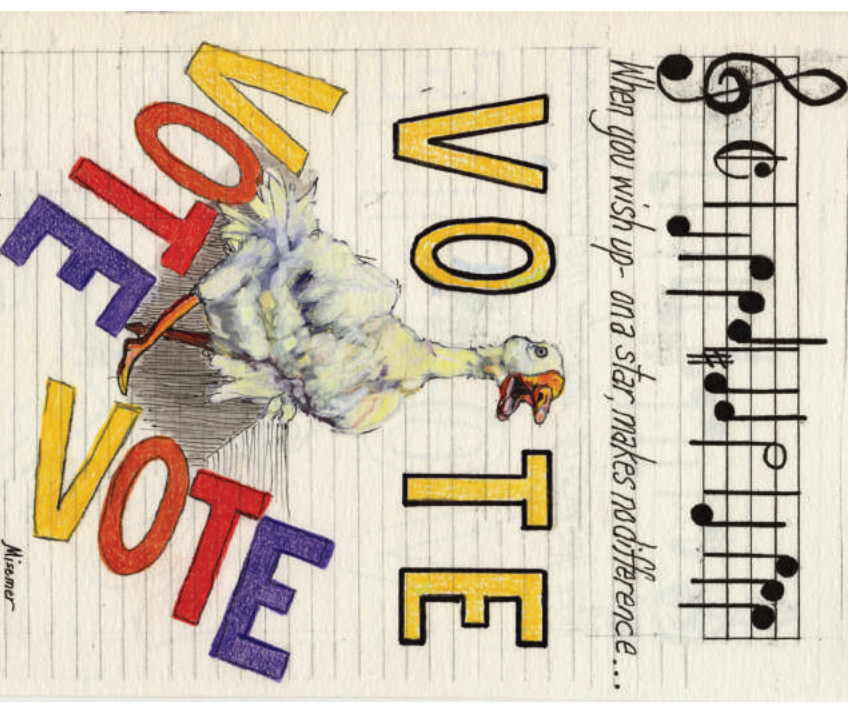 When you wish up- on a star, makes no difference...
VOTE
VOTE VOTE
Misemer